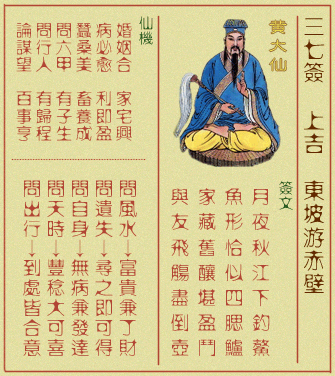 三七簽 上吉 東坡游赤壁
黄大仙
簽文
月夜秋江下釣鰲
魚形恰似四腮鱸
家藏舊釀堪盈鬥
與友飛觴盡倒壺
仙機
婚姻合 家宅興
病必愈 利即盈
蠶桑美 畜養成
問六甲 有子生
問行人 有歸程
論謀望 百事亨
問風水↓富貴兼了財
問遺失↓尋之即可得
問自身↓無病兼發達
問天時↓豐稔大可喜
問出行↓到處皆合意